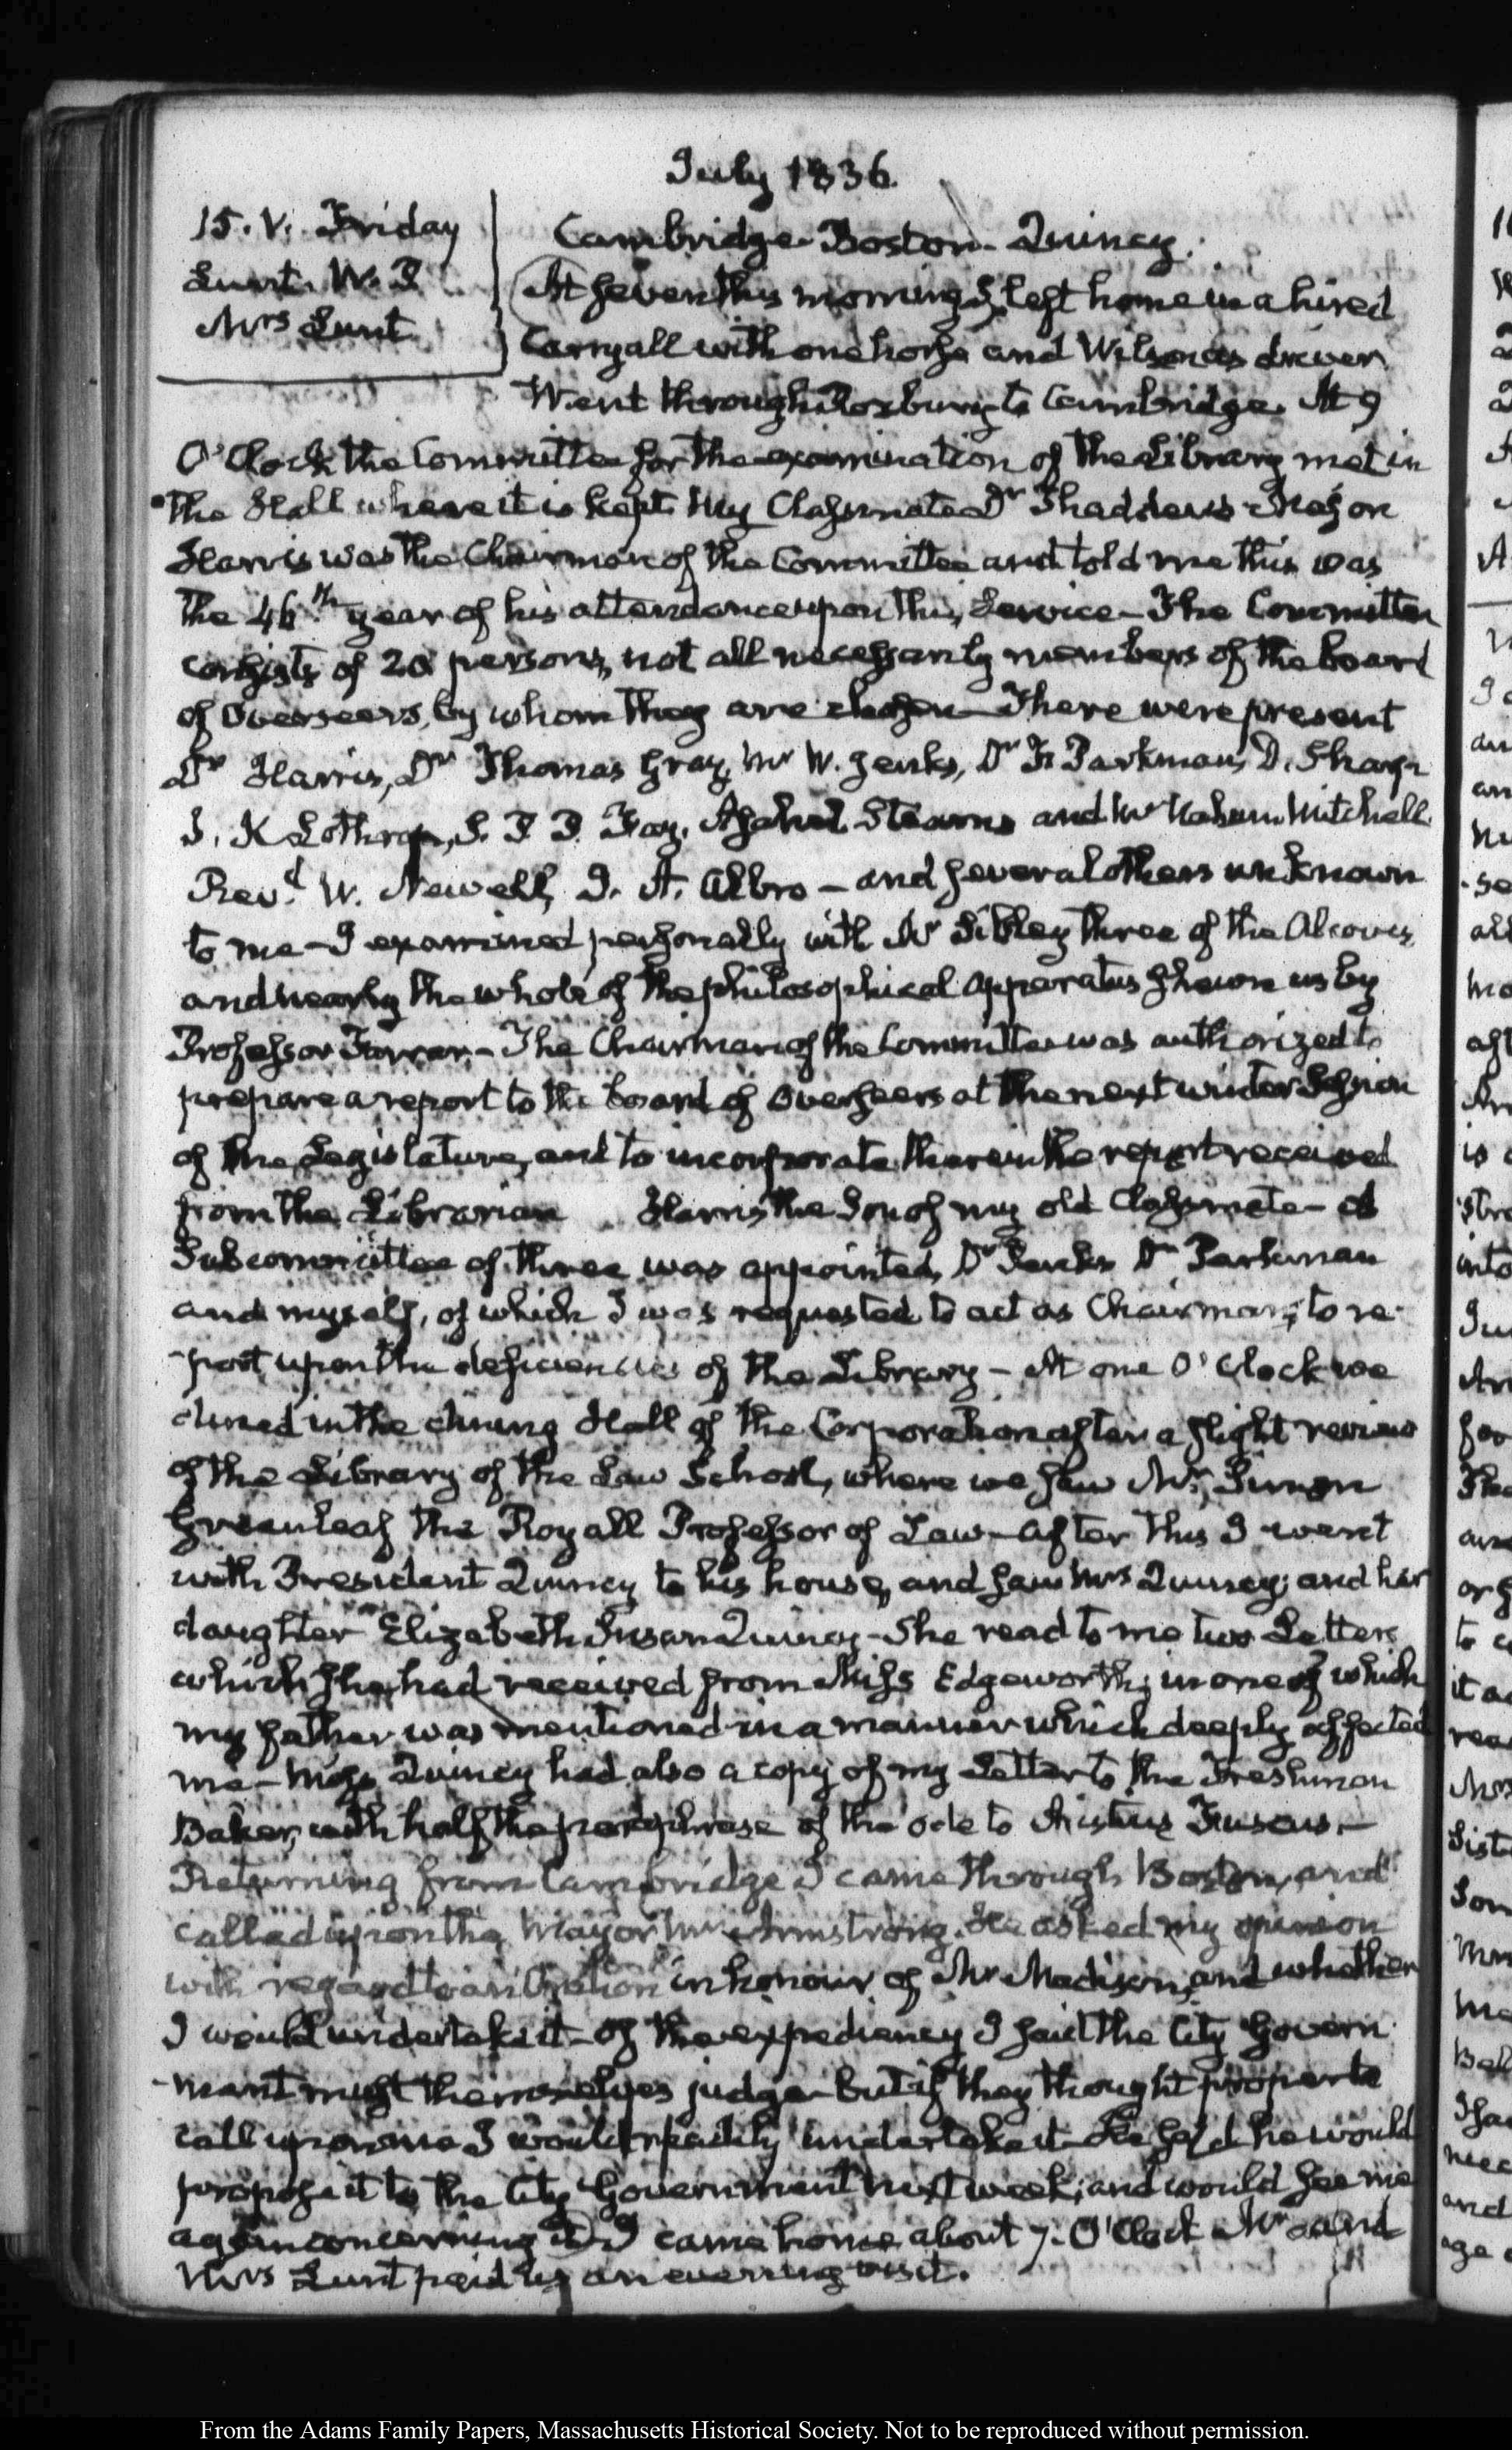 July 1836.
15. V. Friday
Lunt. W. P
Mrs Lunt
Cambridge. Boston. Quincy.
At seven this morning I left home in a hired
Carryall with one horse and Wilson as driver
Went through Roxbury to Cambridge. At 9
O'Clock the Committee for the examination of the Library met in
the Hall where it is kept. My Classmate Dr Thaddeus Mason
Harris was the Chairman of the Committee and told me this was
the 46th year of his attendance upon this Service— The Committee
consists of 20 persons, not all necessarily members of the board
of Overseers, by whom they are chosen— There were present
Dr Harris, Dr Thomas Gray, Mr W. Jenks, Dr F. Parkman, D. Sharp
S. K Lothrop, S. P. P. Fay, Asahel Stearns and Mr Nahum Mitchell
Revd W. Newell, J. A. Albro — and several others unknown
to me— I examined personally with Mr Sibley three of the Alcoves
and nearly the whole of the philosophical apparatus shewn us by
Professor Farrar.— The Chairman of the Committee was authorized to
prepare a report to the board of Overseers at the next winter Session
of the Legislature, and to incorporate therein the report received
from the Librarian Harris the Son of my old Classmate— A
Subcommittee of three was appointed, Dr Jenks Dr Parkman
and myself, of which I was requested to act as Chairman, to re-
-port upon the deficiencies of the Library — At one O'Clock we
dined in the dining Hall of the Corporation after a slight review
of the Library of the Law School, where we saw Mr Simon
Greenleaf the Royall Professor of Law— After this I went
with President Quincy to his house, and saw Mrs Quincy; and her
daughter Elizabeth Susan Quincy— She read to me two Letters
which she had received from Miss Edgeworth; in one of which
my father was mentioned in a manner which deeply affected
me— Miss Quincy had also a copy of my Letter to the Freshman
Baker, with half the paraphrase of the ode to Aristius Fuscus.—
Returning from Cambridge I came through Boston, and
called upon the Mayor Mr Armstrong. He asked my opinion
with regard to an Oration in honour of Mr Madison, and whether
I would undertake it— Of the expediency I said the City Govern
-ment must themselves judge— but if they thought proper to
call upon me I would readily undertake it— He said he would
propose it to the City Government next week; and would see me
again concerning it. I came home about 7. O'Clock Mr and
Mrs Lunt paid us an evening visit.
From the Adams Family Papers, Massachusetts Historical Society. Not to be reproduced without permission.